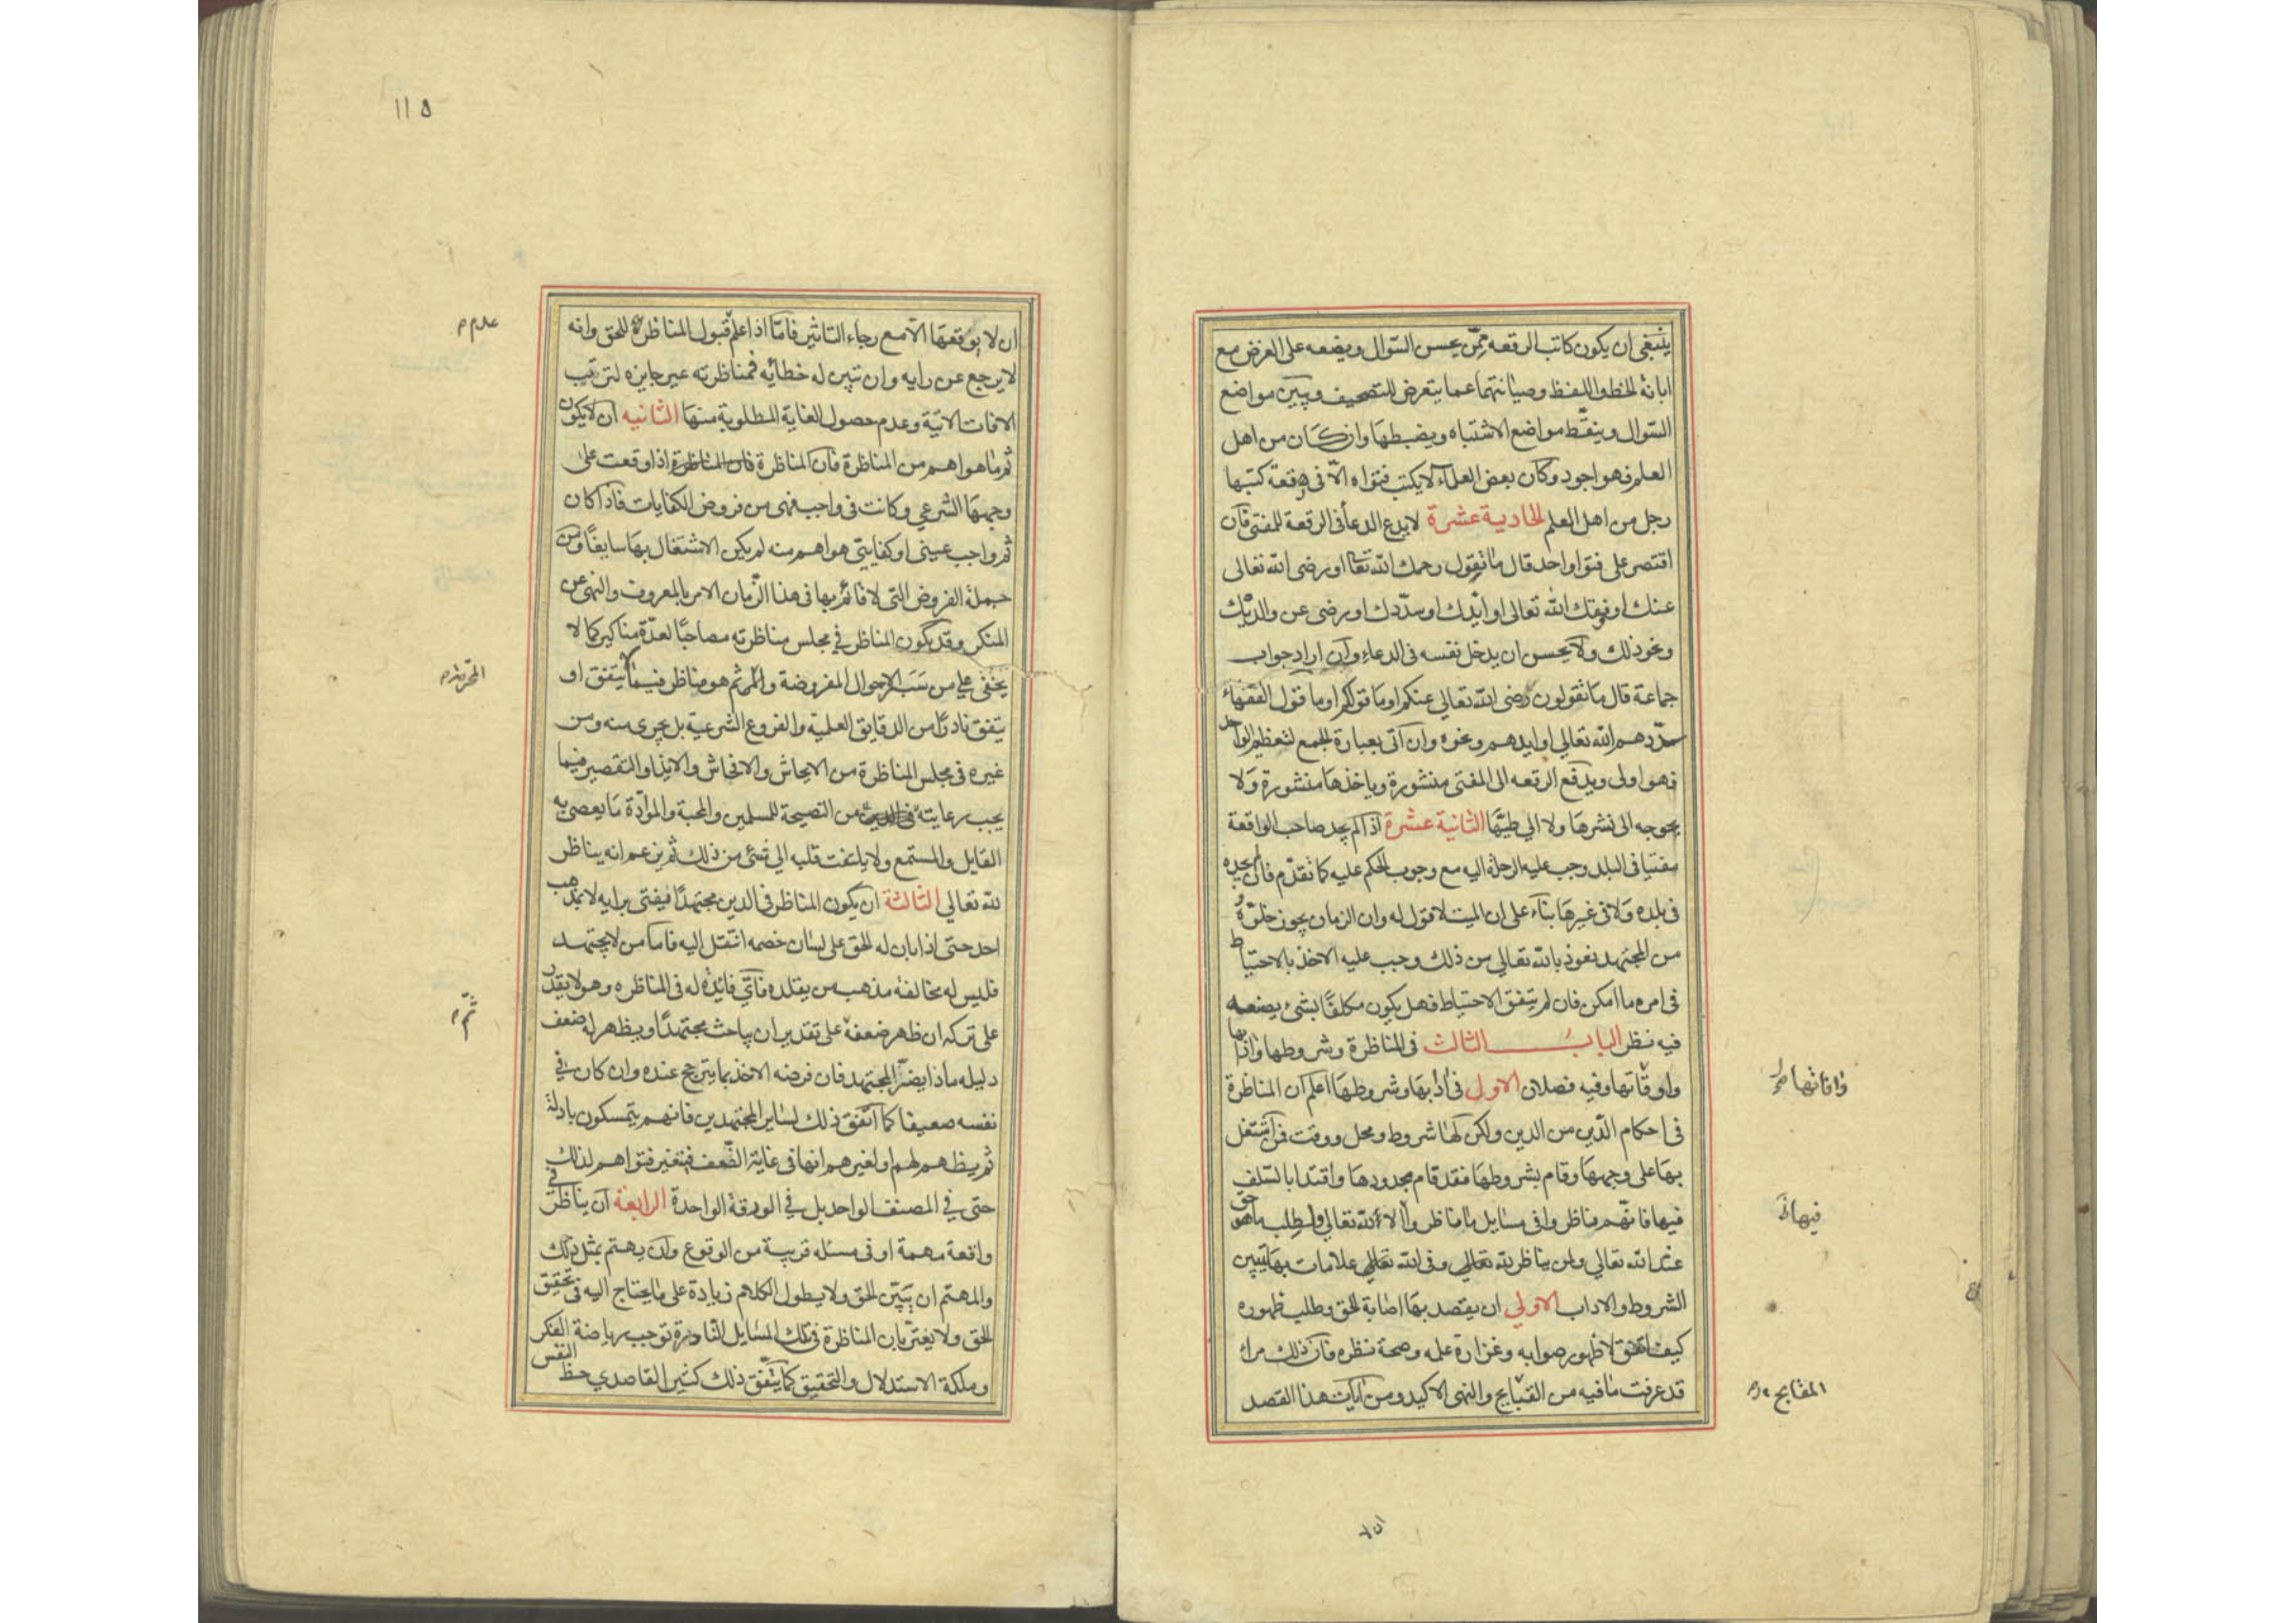 ينبغي ان يكون كاتب الرقعه ممّن يحسن السّوال ويضعه على الغرض مع
ابانة الخط واللفظ وصيانتهما عما يتعرض للتصحيف ويبيّن مواضع
السّوال وينقّط مواضع الاشتباه ويضبطها وان كان من اهل
العلم فهو اجود وكان بعض العلماء لا يكتب فتواه الّا فى رقعة كتبها
رجل من اهل العلم الحادية عشرة لا يدع الدعا فى الرقعة للمفتى فان
اقتصر على فتوا واحد قال ما تقول رحمك الله تعا او رضى الله تعالى
عنك او وفقك الله تعالى او ايّدك او سدّدك او رضى عن والديْك
ونحو ذلك ولا يحسن ان يدخل نفسه فى الدعاء وان اراد جواب
جماعة قال ما تقولون رضى الله تعالى عنكم او ما قولكم او ما قول الفقهاء
سدّدهم الله تعالي او ايدهم ونحوه وان اتى بعبارة الجمع لتعظيم الواحد
فهو اولى ويدفع الرقعه الى المفتى منشورة وياخذها منشورة ولا
يحوجه الى نشرها ولا الي طيّها الثانية عشرة اذا لم يجد صاحب الواقعة
مفتيا فى البلد وجب عليه الرحلة اليه مع وجوب الحكم عليه كما تقدّم فان لم يجده
فى بلده ولا فى غيرها بناء على ان الميت لا قول له وان الزمان يجوز خلوّه
من المجتهد نعوذ بالله تعالي من ذلك وجب عليه الاخذ بالاحتياط
فى امره ما امكن فان لم يتفق الاحتياط فهل يكون مكلفًا بشئ يصنعه
فيه نظر الباب الثالث فى المناظرة وشروطها وادابها
وافاتها
واوقاتها وفيه فصلان الاول فى ادابها وشروطها اعلم ان المناظرة
فى احكام الدّين من الدين ولكن لها شروط ومحل ووقت فمن اشتغل
بها على وجهها وقام بشروطها فقد قام بحدودها واقتدا بالسّلف
فيها فانّهم تناظروا فى مسايل وما تناظروا الا لله تعالي ولطلب ما هو حق
فيها
عند الله تعالي ولمن يناظر لله تعالي وفى الله تعالي علامات بها تتبين
الشروط والاداب الاولي ان يقصد بها اصابة الحق وطلب ظهوره
كيف اتفق لا ظهور صوابه وغزارة علمه وصحة نظره فان ذلك مراء
قد عرفت ما فيه من القبايح والنهى الاكيد ومن ايات هذا القصد
١١٥
ان لا يوقعها الّا مع رجاء التاثير فامّا اذا علم قبول المناظرة للحق وانه
عدم
لا يرجع عن رايه وان تبين له خطائه فمناظرته غير جايزه لترتب
الافات الاتية وعدم حصول الغاية المطلوبة منها الثانيه ان لا يكون
ثم ما هو اهم من المناظرة فان المناظرة فان المناظرة اذا وقعت على
وجهها الشرعي وكانت فى واجب فهى من فروض الكفايات فاذا كان
ثم واجب عينى او كفايتى هو اهم منه لم يكن الاشتغال بها سايغًا ومن
جملة الفروض التى لا قائم بها فى هذا الزّمان الامر بالمعروف والنهى عن
المنكر وقد يكون المناظر في مجلس مناظرته مصاحبًا لعدّة مناكير كما لا
يخفى على من سبر الاحوال المفروضة والمحرمة ثم هو مناظر فيما لا يتفق او
يتفق نادرًا من الدقايق العلميّة والفروع الشرعية بل يجرى منه ومن
غيره فى مجلس المناظرة من الايحاش والافحاش والايذاء والتقصير فيما
يجب رعايته من النصيحة للمسلمين والمحبة والموادّة ما يعصى به
القايل والمستمع ولا يلتفت قلبه الى شئ من ذلك ثم يزعم انه يناظر
لله تعالي الثالثة ان يكون المناظر فى الدين مجتهدًا فيفتى برايه لا بمذهب
احد حتى اذا بان له الحق على لسان خصمه انتقل اليه فاما من لا يجتهد
فليس له مخالفة مذهب من يقلده فاىّ فائدة له فى المناظره وهو لا يقدر
على تركه ان ظهر ضعفه على تقدير ان يباحث مجتهدًا ويظهر له ضعف
ثمّ
دليله ماذا يضرّ المجتهد فان فرضه الاخذ بما يترجح عنده وان كان في
نفسه ضعيفا كما اتّفق ذلك لساير المجتهدين فانهم يتمسكون بادلة
ثم يظهر لهم او لغيرهم انها فى غاية الضّعف فيتغير فتواهم لذلك
حتى في المصنف الواحد بل في الورقة الواحدة الرابعة ان يناظر فى
واقعة مهمة او فى مسئله قريبة من الوقوع وان يهتم بمثل ذلك
والمهتم ان يتبيّن الحق ولا يطول الكلام زيادة على ما يحتاج اليه فى تحقيق
الحق ولا يغترّ بان المناظرة فى تلك المسايل النّادرة توجب رياضة الفكر
وملكة الاستدلال والتحقيق كما يتّفق ذلك كثير القاصدي حظ النفس